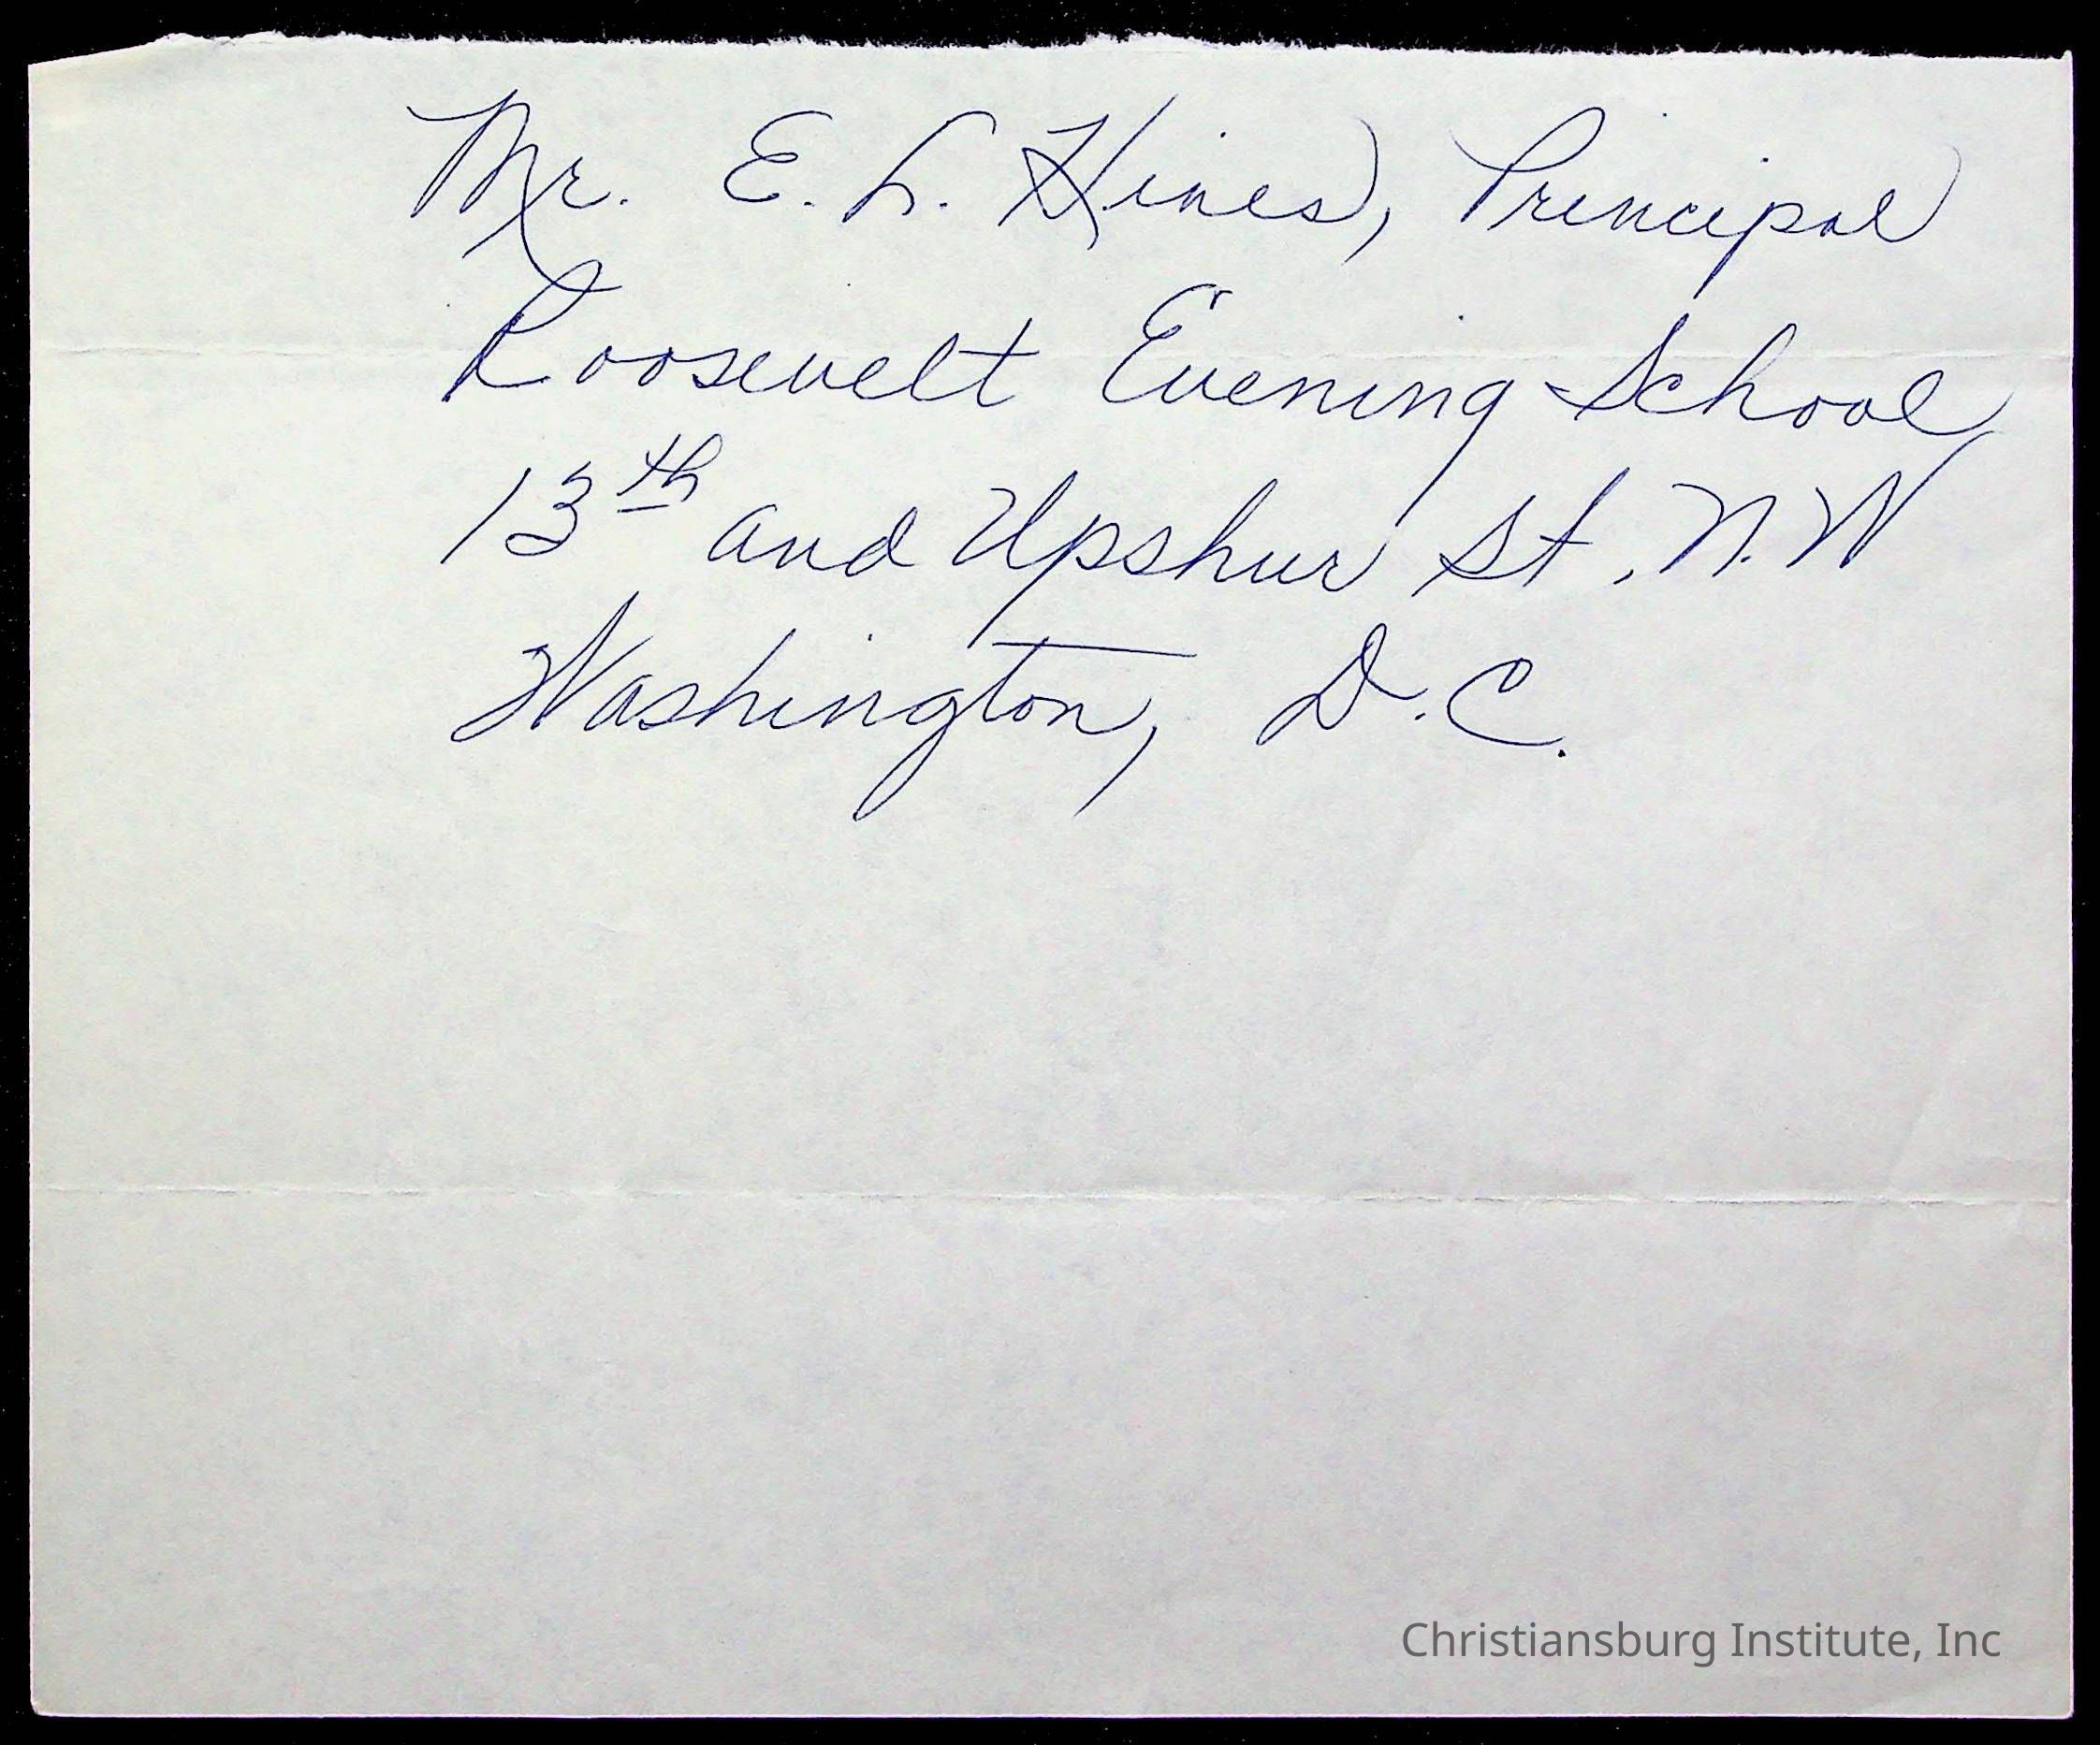 Mr. E. L. Hines, Principal
Roosevelt Evening School
13th and Upshur St., N.W
Washington, D.C.
Christiansburg Institute, Inc